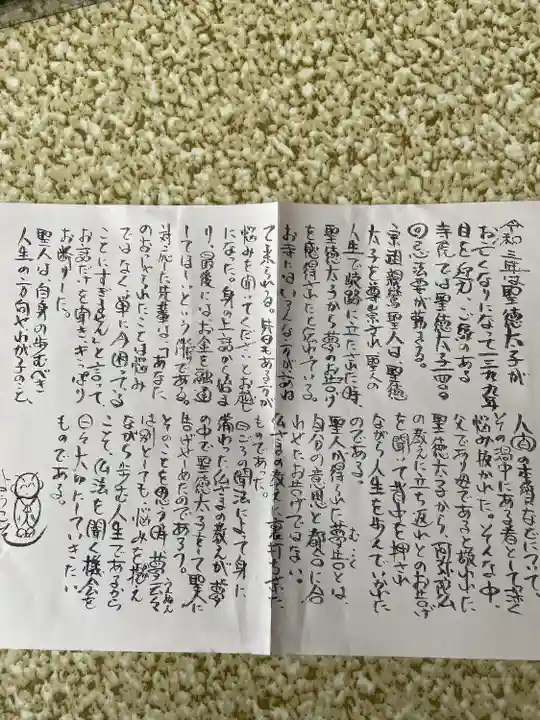 令和三年は聖徳太子が
お亡くなりになって一三九九年
目を迎え、ご縁のある
寺院では聖徳太子一四〇〇
回忌法要が勤まる。
宗祖親鸞聖人は聖徳
太子を尊崇され聖人の
人生で岐路に立たされた時、
聖徳太子から夢のお告げ
を感得されたと伝わている。
お寺にはいろんな方が訪ね
て来られる。先日もある方が
悩みを聞いてくださいとお越し
になった。身の上話から始ま
り、最後には、お金を融通
してほしいという
対応した
のおっしゃったことは悩み
ではなく単に今困っている
ことにすぎません」と言って、
お話だけを聞き、きっぱり
お断りした。
聖人は自身の歩むべき
人生の方向やわが子のこと、
人間の
その渦中にある者として深く
悩み抜かれた。そんな中、
父であり母であると敬われた
聖徳太子から、阿弥陀仏
の教えに立ち返れとのお告げ
を聞いて背中を押され
ながら人生を歩んでいかれた
のである。
聖人が得られた夢告とは、
むこく
自分の意思と都合に合
わせたお告げではない。
仏さまの教えに裏打ちされた
ものであった。
日ごろの聞法によって身に
備わった仏さまの教えが、夢
の中で聖徳太子をして聖人に
告げせしめたのであろう。
そのことを思う時、夢云々
うんぬん
は別としても、悩みを抱え
ながら歩む人生であるから
こそ、仏法を聞く機会を
日々大切にしていきたい
ものである。